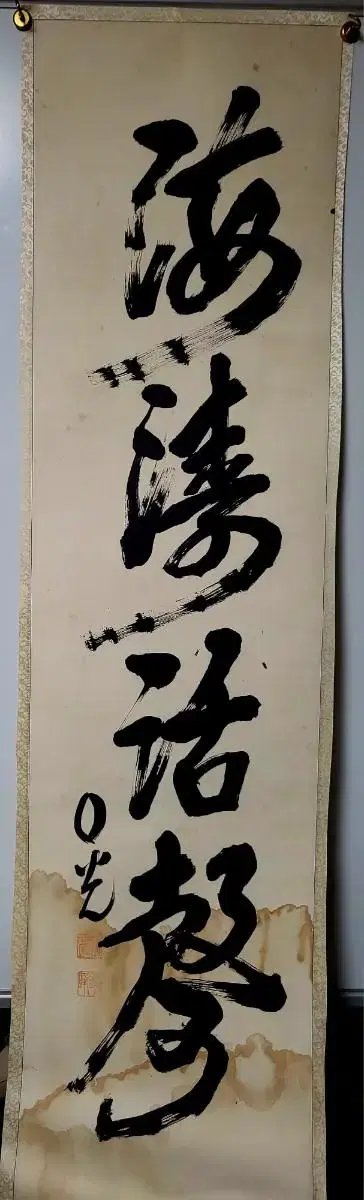 海濤話聲
〇光